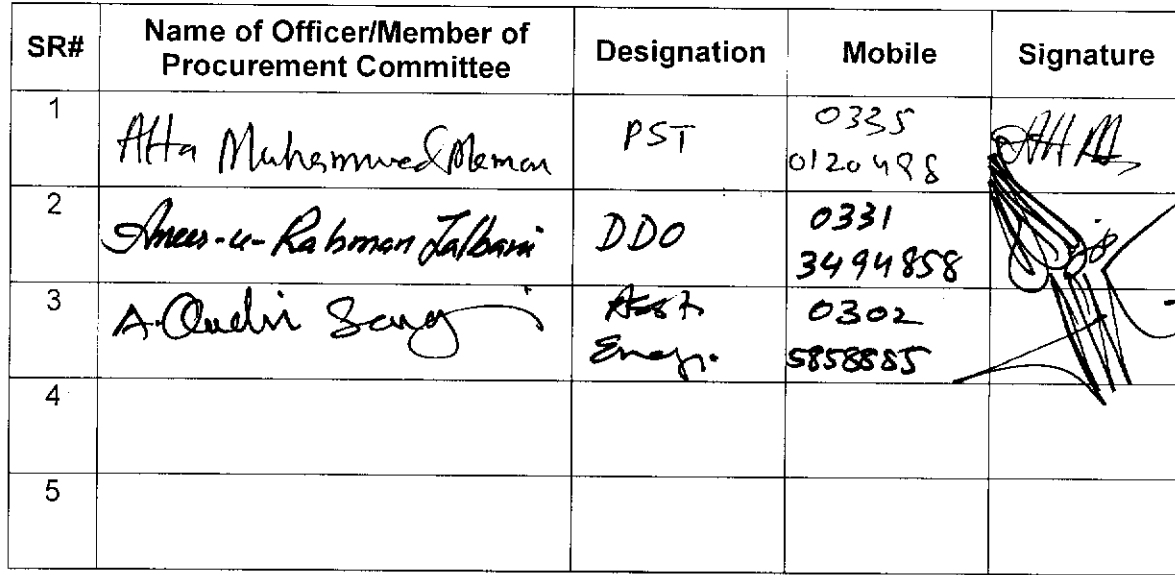 SR# Name of Officer/Member of Procurement Committee Designation Mobile Signature
1 Atta Muhammad Memon PST 0335 0120498
2 Anees-u-Rahman Jalbani DDO 0331 3494858
3 A. Qadir Asst Engr. 0302 5858885
4
5